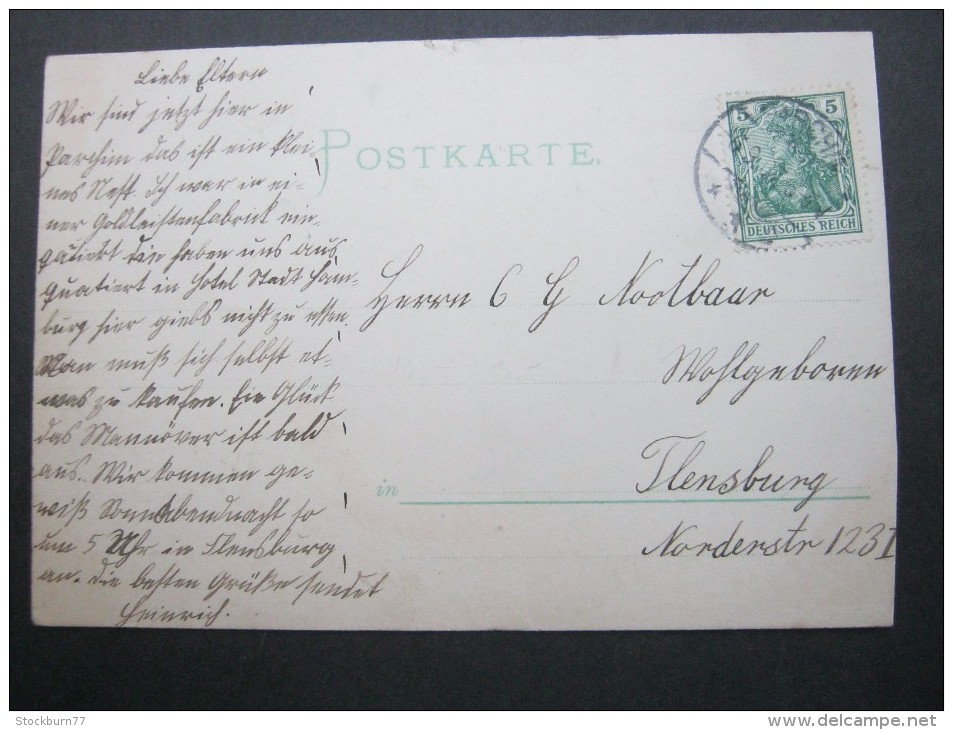 Liebe Eltern
Wir sind jetzt hier in
Parchim das ist ein klei-
nes Nest. Ich war in ei-
ner Goldleistenfabrick ein-
quatiert die haben uns aus
quatiert in Hotel Stadt Ham-
burg hier giebs nicht zu essen.
Man muß sich selbst et-
was zu kaufen. Ein Glück
das Mannöver ist bald
aus. Wir kommen ge-
wiß Sonnabendnacht so
um 5 Uhr in Flensburg
an. Die besten Grüße sendet
Heinrich.
POSTKARTE.
5 5
DEUTSCHES REICH
Herrn C H Nootbaar
Wohlgeboren
in Flensburg
Norderstr 123 I
Stockburn77
www.delcampe.net